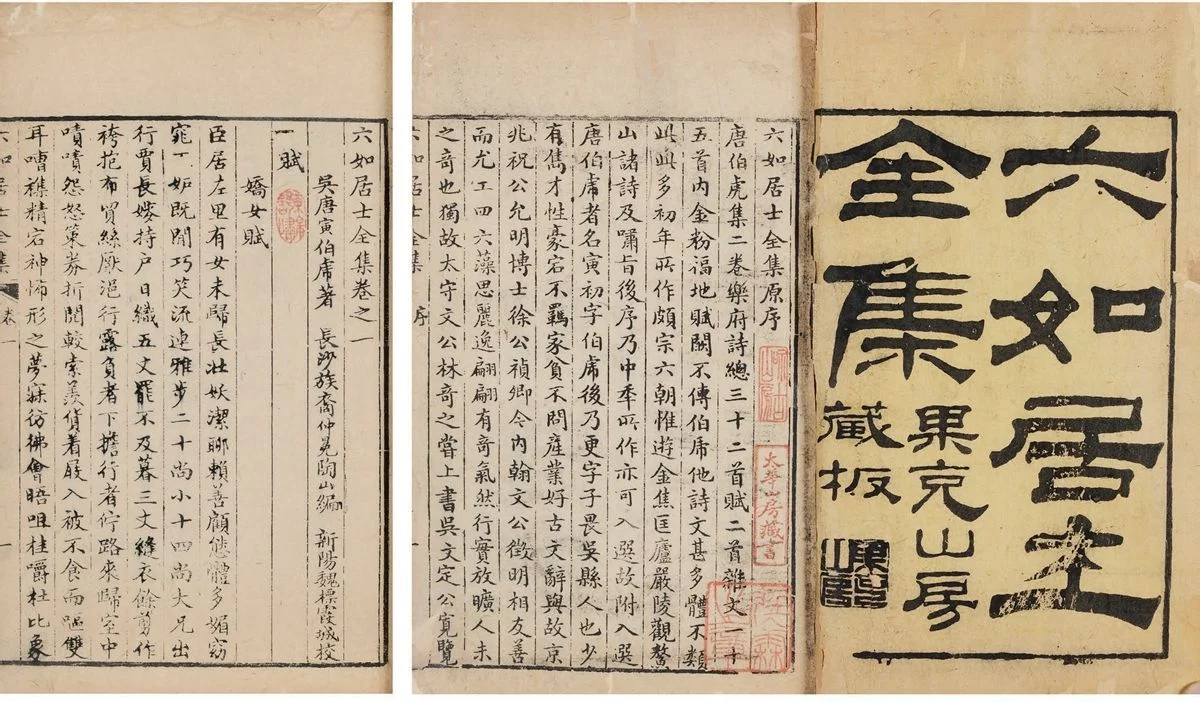 六如居士
全集
果克山房
藏板
六如居士全集原序
唐伯虎集二卷樂府詩總三十二首賦二首雜文一十
五首內金粉福地賦闕不傳伯虎他詩文甚多體不類
此此多初年所作頗宗六朝惟遊金焦匡廬嚴陵觀鰲
山諸詩及嘯旨後序乃中年所作亦可入選故附入選
唐伯虎者名寅初字伯虎後乃更字子畏吳縣人也少
有雋才性豪宕不羈家貧不問產業好古文辭與故京
兆祝公允明博士徐公禎卿今內翰文公徵明相友善
而尤工四六藻思麗逸翩翩有奇氣然行實放曠人未
之奇也獨故太守文公林奇之嘗上書吳文定公寬覽
六如居士全集 序
太華山房藏書
六如居士全集卷之一
吳唐寅伯虎著 長沙族裔仲冕陶山編 新陽魏標霞城校
一賦
嬌女賦
臣居左里有女未歸長壯妖潔聊賴善顧態體多媚窈
窕丁妬既閒巧笑流連雅步二十尚小十四尚大兄出
行賈長嫂持戶日織五丈罷不及暮三丈縫衣餘剪作
袴抱布買絲厭浥行露負者下擔行者佇路來歸室中
嘖嘖怨怒策券折閱較索羨貨着屐入被不食而嘔雙
耳嘈襍精宕神怖形之夢寐彷彿會晤咀桂嚼杜比象
六如居士全集 卷一 一